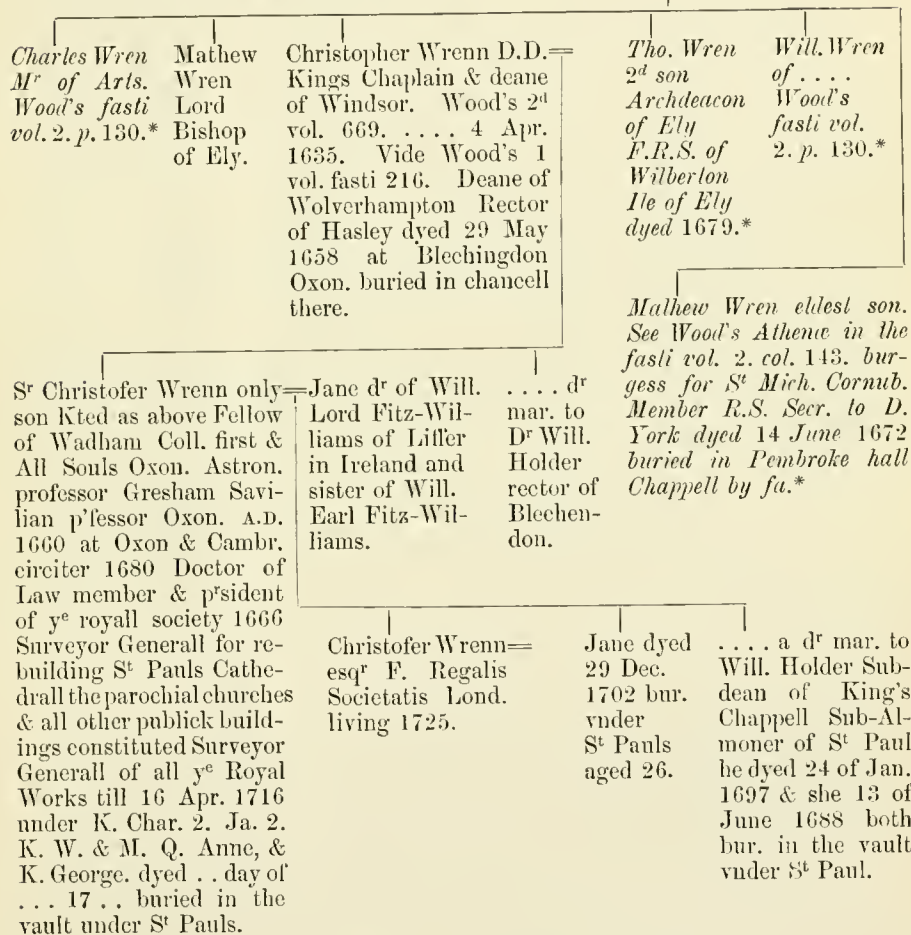 Charles Wren
Mr of Arts.
Wood's fasti
vol. 2. p. 130.*
Mathew
Wren
Lord
Bishop
of Ely.
Christopher Wrenn D.D.=
Kings Chaplain & deane
of Windsor. Wood's 2d
vol. 669. .... 4 Apr.
1635. Vide Wood's 1
vol. fasti 216. Deane of
Wolverhampton Rector
of Hasley dyed 29 May
1658 at Blechingdon
Oxon. buried in chancell
there.
Tho. Wren
2d son
Archdeacon
of Ely
F.R.S. of
Wilberton
Ile of Ely
dyed 1679.*
Will. Wren
of ....
Wood's
fasti vol.
2. p. 130.*
Mathew Wren eldest son.
See Wood's Athenæ in the
fasti vol. 2. col. 143. bur-
gess for St Mich. Cornub.
Member R.S. Secr. to D.
York dyed 14 June 1672
buried in Pembroke hall
Chappell by fa.*
Sr Christofer Wrenn only=
son Kted as above Fellow
of Wadham Coll. first &
All Souls Oxon. Astron.
professor Gresham Savi-
lian p'fessor Oxon. A.D.
1660 at Oxon & Cambr.
circiter 1680 Doctor of
Law member & prsident
of ye royall society 1666
Surveyor Generall for re-
building St Pauls Cathe-
drall the parochial churches
& all other publick build-
ings constituted Surveyor
Generall of all ye Royal
Works till 16 Apr. 1716
under K. Char. 2. Ja. 2.
K. W. & M. Q. Anne, &
K. George. dyed .. day of
... 17 .. buried in the
vault under St Pauls.
Jane dr of Will.
Lord Fitz-Wil-
liams of Liffer
in Ireland and
sister of Will.
Earl Fitz-Wil-
liams.
.... dr
mar. to
Dr Will.
Holder
rector of
Blechen-
don.
Christofer Wrenn=
esqr F. Regalis
Societatis Lond.
living 1725.
Jane dyed
29 Dec.
1702 bur.
vnder
St Pauls
aged 26.
.... a dr mar. to
Will. Holder Sub-
dean of King's
Chappell Sub-Al-
moner of St Paul
he dyed 24 of Jan.
1697 & she 13 of
June 1688 both
bur. in the vault
vnder St Paul.